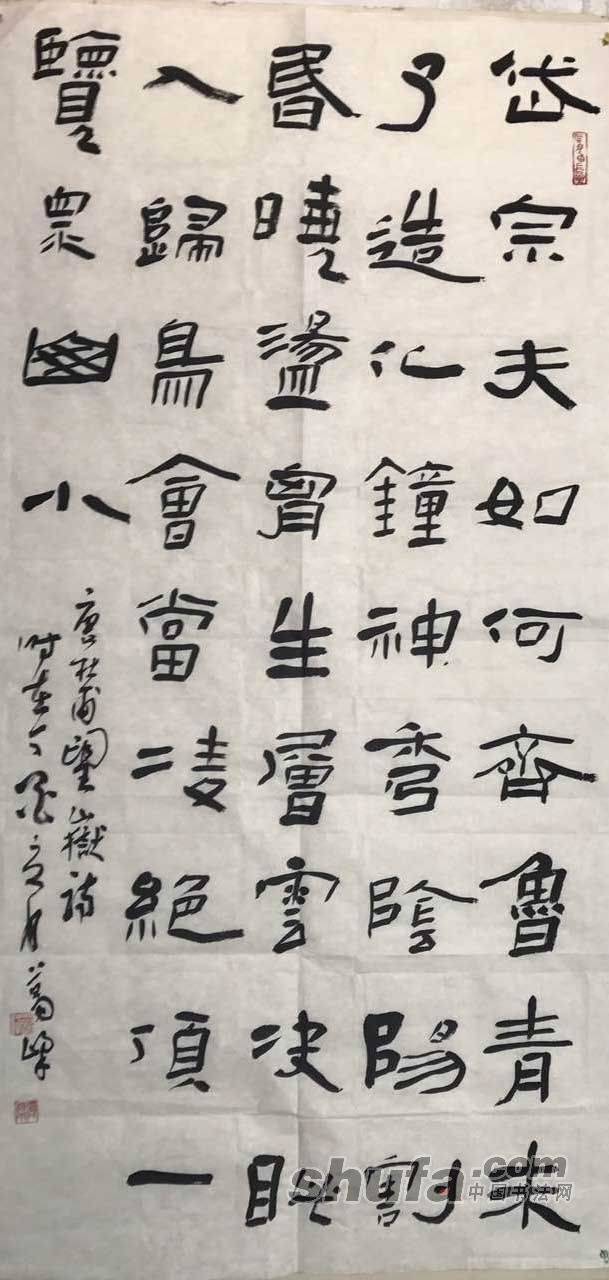 岱宗夫如何齊魯青未
了造化鐘神秀陰陽割
昏曉盪胷生層雲决眦
入歸鳥會當凌絕頂一
覽眾山小
唐杜甫望嶽詩
时在 月葛峰
shufa.com
中国书法网